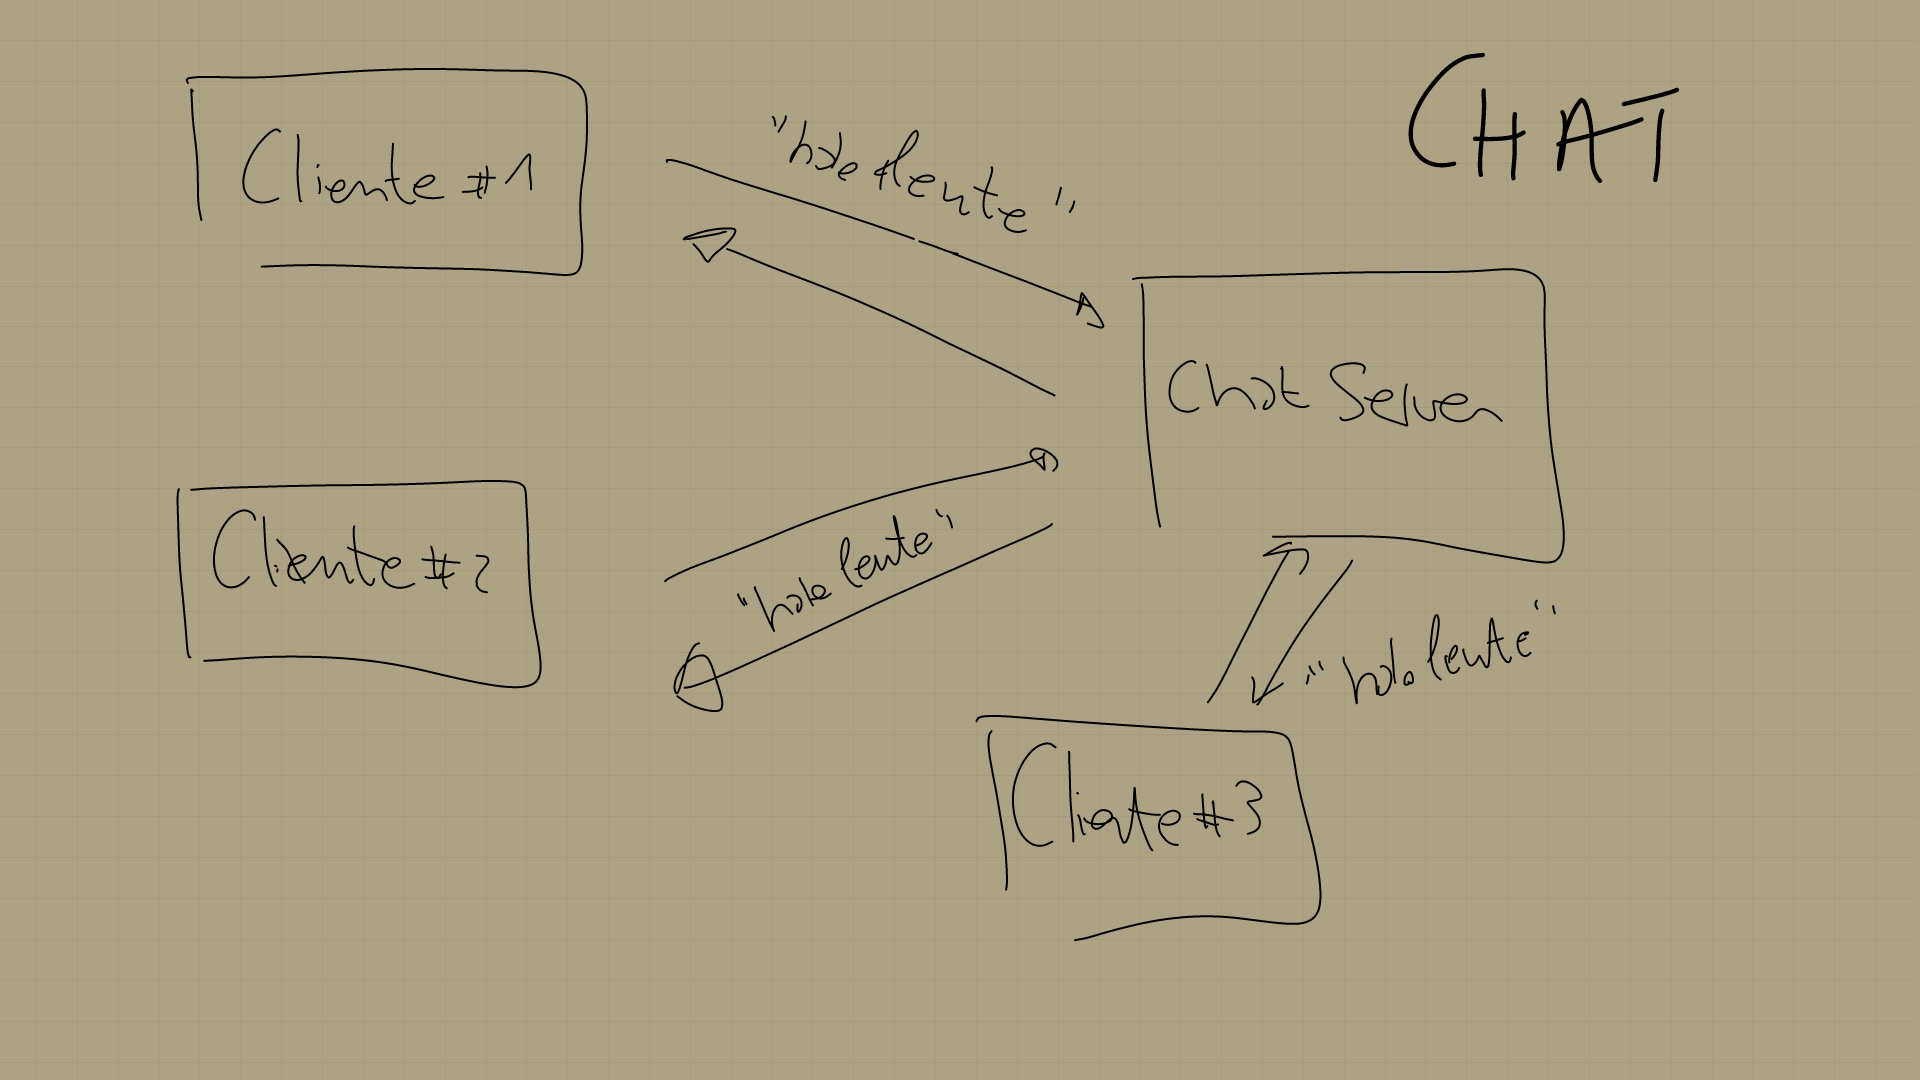 CHAT
Cliente #1
"hola
Chat Server
Cliente #2
"hola lente"
"hola lente"
Cliente #3